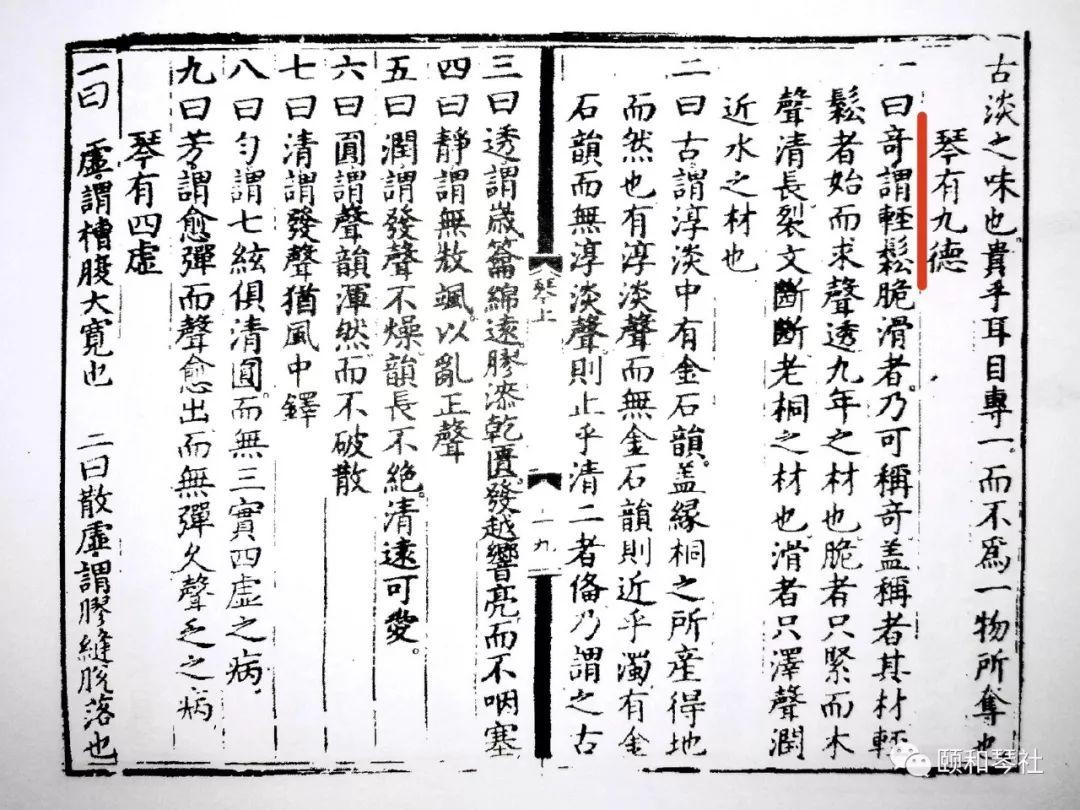 古淡之味也貴乎耳目專一而不爲一物所奪也
琴有九德
一曰奇謂輕鬆脆滑者乃可稱奇盖稱者其材輕
鬆者始而求聲透九年之材也脆者只緊而木
聲清長裂文斷斷老桐之材也滑者只澤聲潤
近水之材也
二曰古謂淳淡中有金石韻盖緣桐之所産得地
而然也有淳淡聲而無金石韻則近乎濁有金
石韻而無淳淡聲則止乎清二者俻乃謂之古
琴上
一九
三曰透謂歳籥綿遠膠漆乾匱發越響亮而不咽塞
四曰靜謂無㪚颯以亂正聲
五曰潤謂發聲不燥韻長不絶清遠可愛。
六曰圓謂聲韻渾然而不破散
七曰清謂發聲猶風中鐸
八曰匀謂七絃俱清圓而無三實四虛之病
九曰芳謂愈彈而聲愈出而無彈久聲乏之病
琴有四虛
一曰 虛謂槽腹大寬也 二曰散虛謂膠縫脫落也
颐和琴社